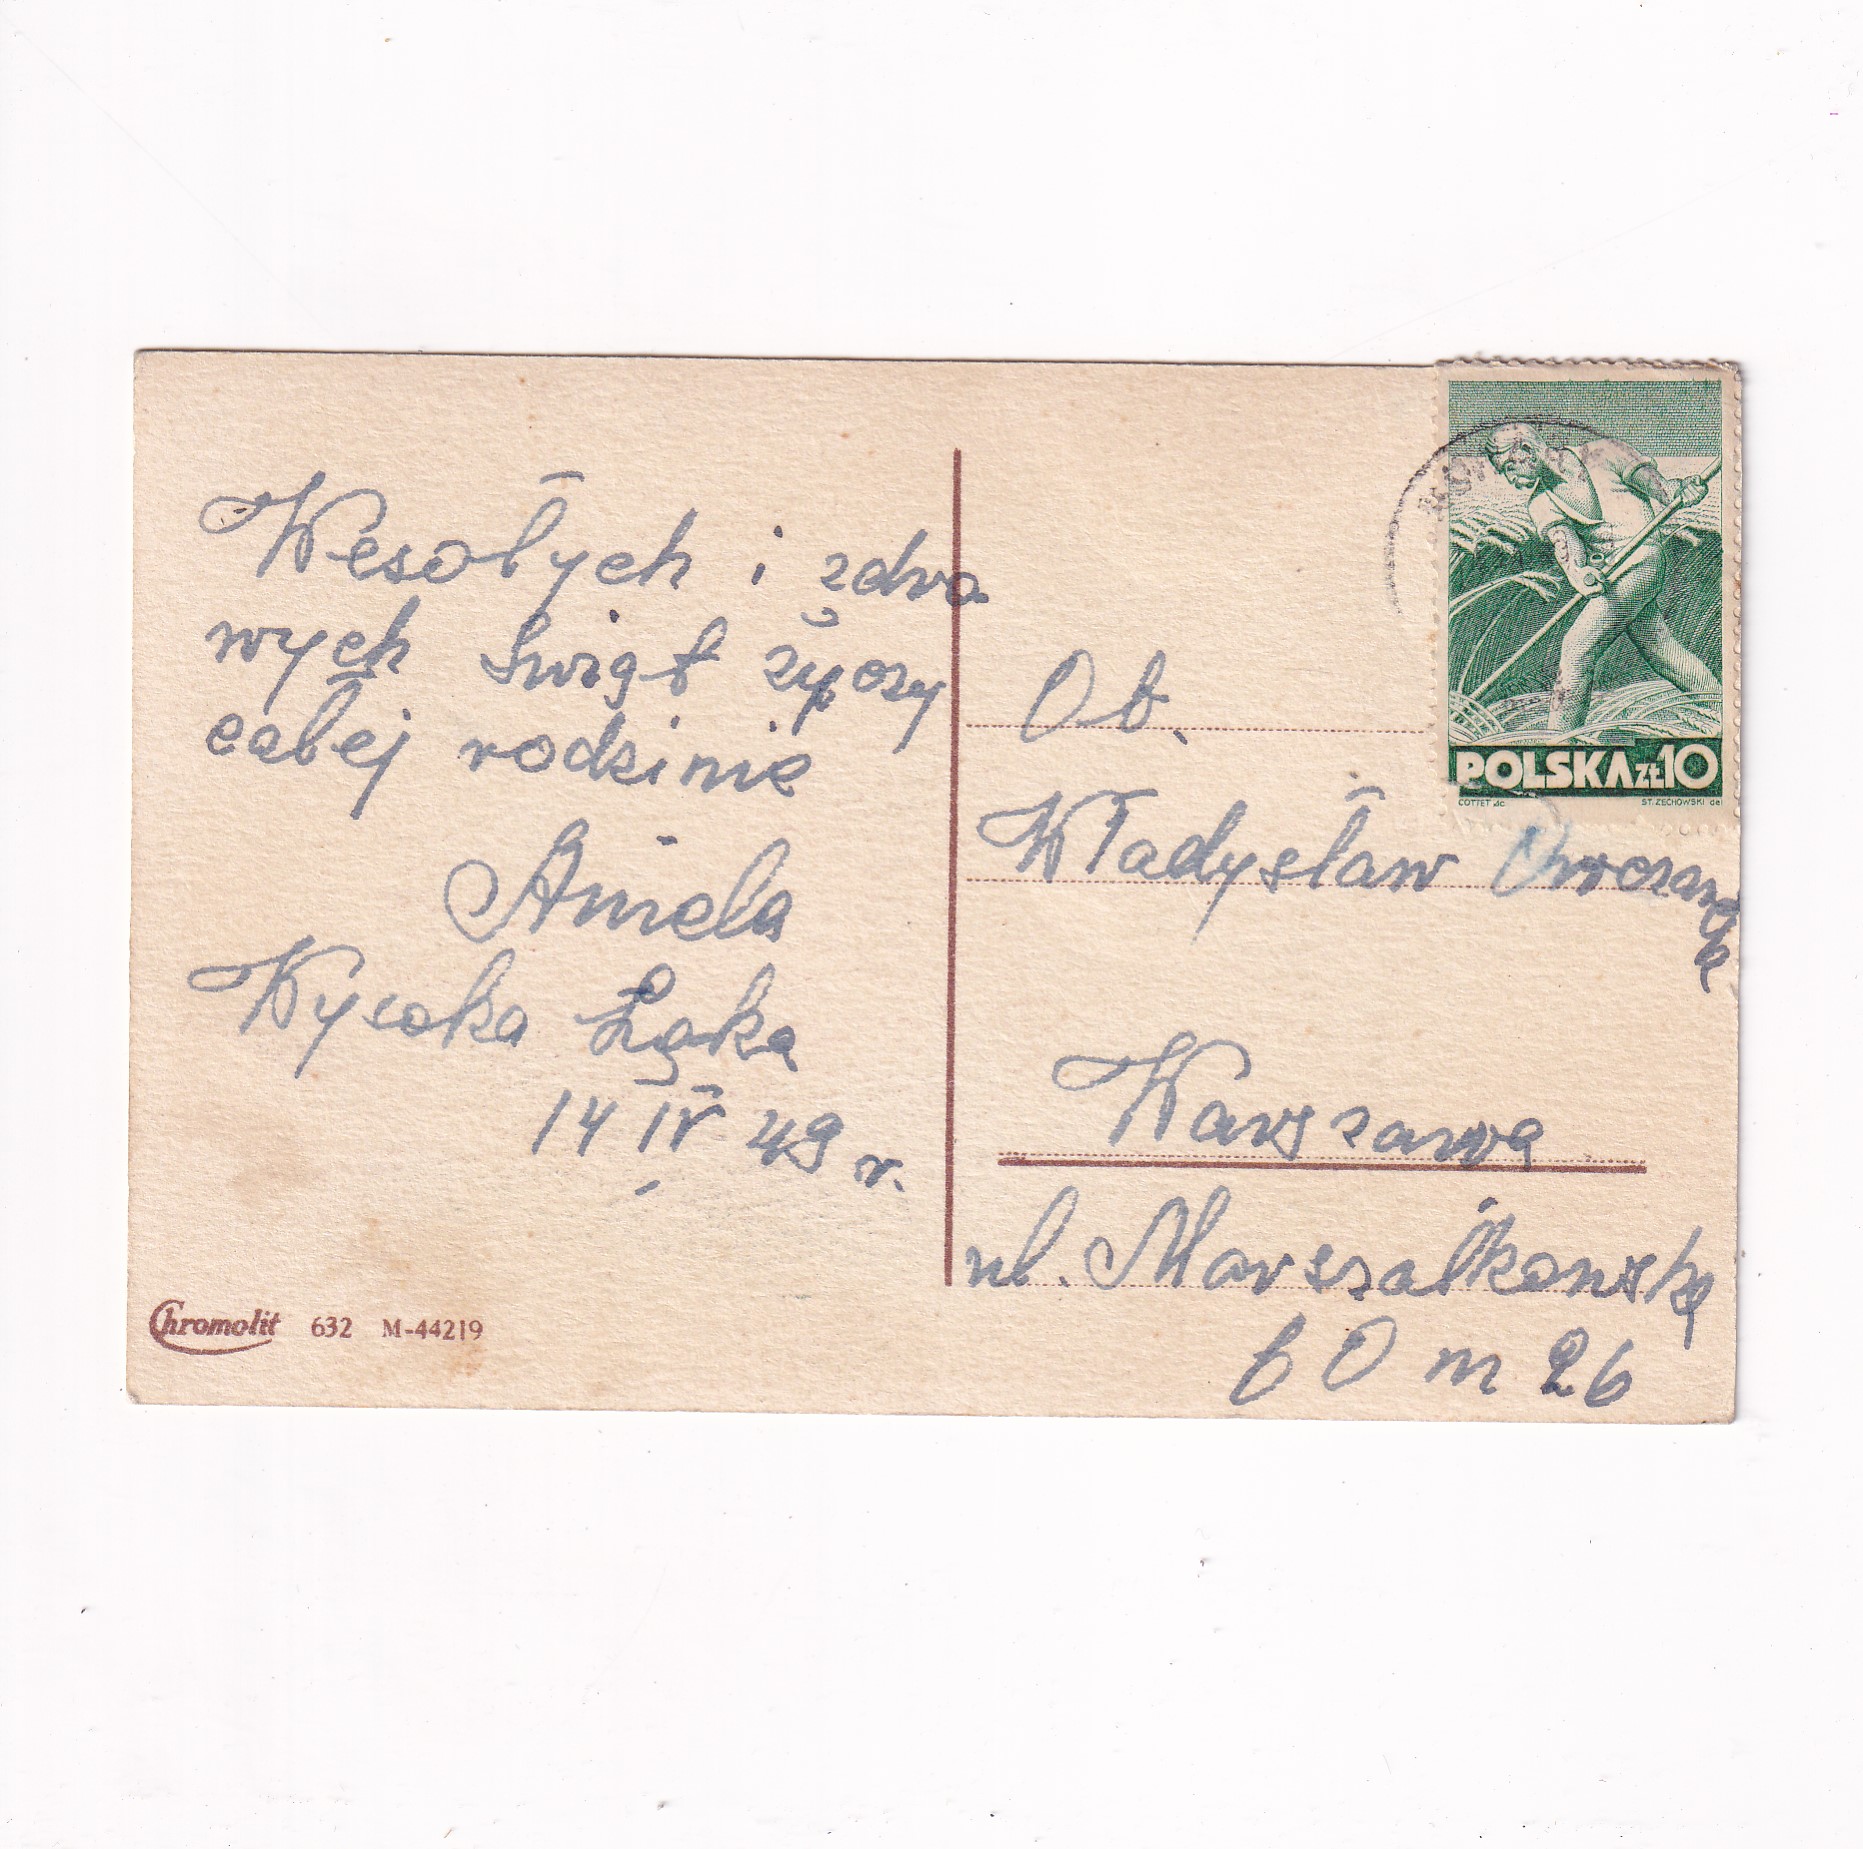 Wesołych i zdro
wych Świąt życzy
całej rodzinie
Aniela
Wysoka Łąka
14 IV 49 r.
Chromolit 632 M-44219
POLSKA ZŁ 10
COTTET sc. ST. ŻECHOWSKI del
Ob.
Władysław
Warszawa
ul. Marszałkowska
60 m 26